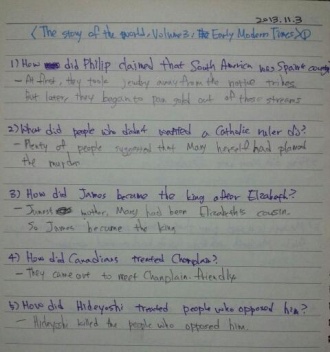 2013.11.3
<The story of the world, Volume 3, The Early Modern Times> ①
1) How did Philip claimed that South America was Spain's
- At first, they took jewelry away from the native tribes.
But later, they began to pan gold out of these streams
2) What did people who didn't wanted a Catholic ruler do?
- Plenty of people suggested that Mary herself had planed
the murder
3) How did James became the king after Elizabeth?
- James mother, Mary had been Elizabeth's cousin.
So James became the king
4) How did Canadians treated Champlain?
- They came out to meet Champlain friendly.
5) How did Hideyoshi treated people who opposed him?
- Hideyoshi killed the people who opposed him.